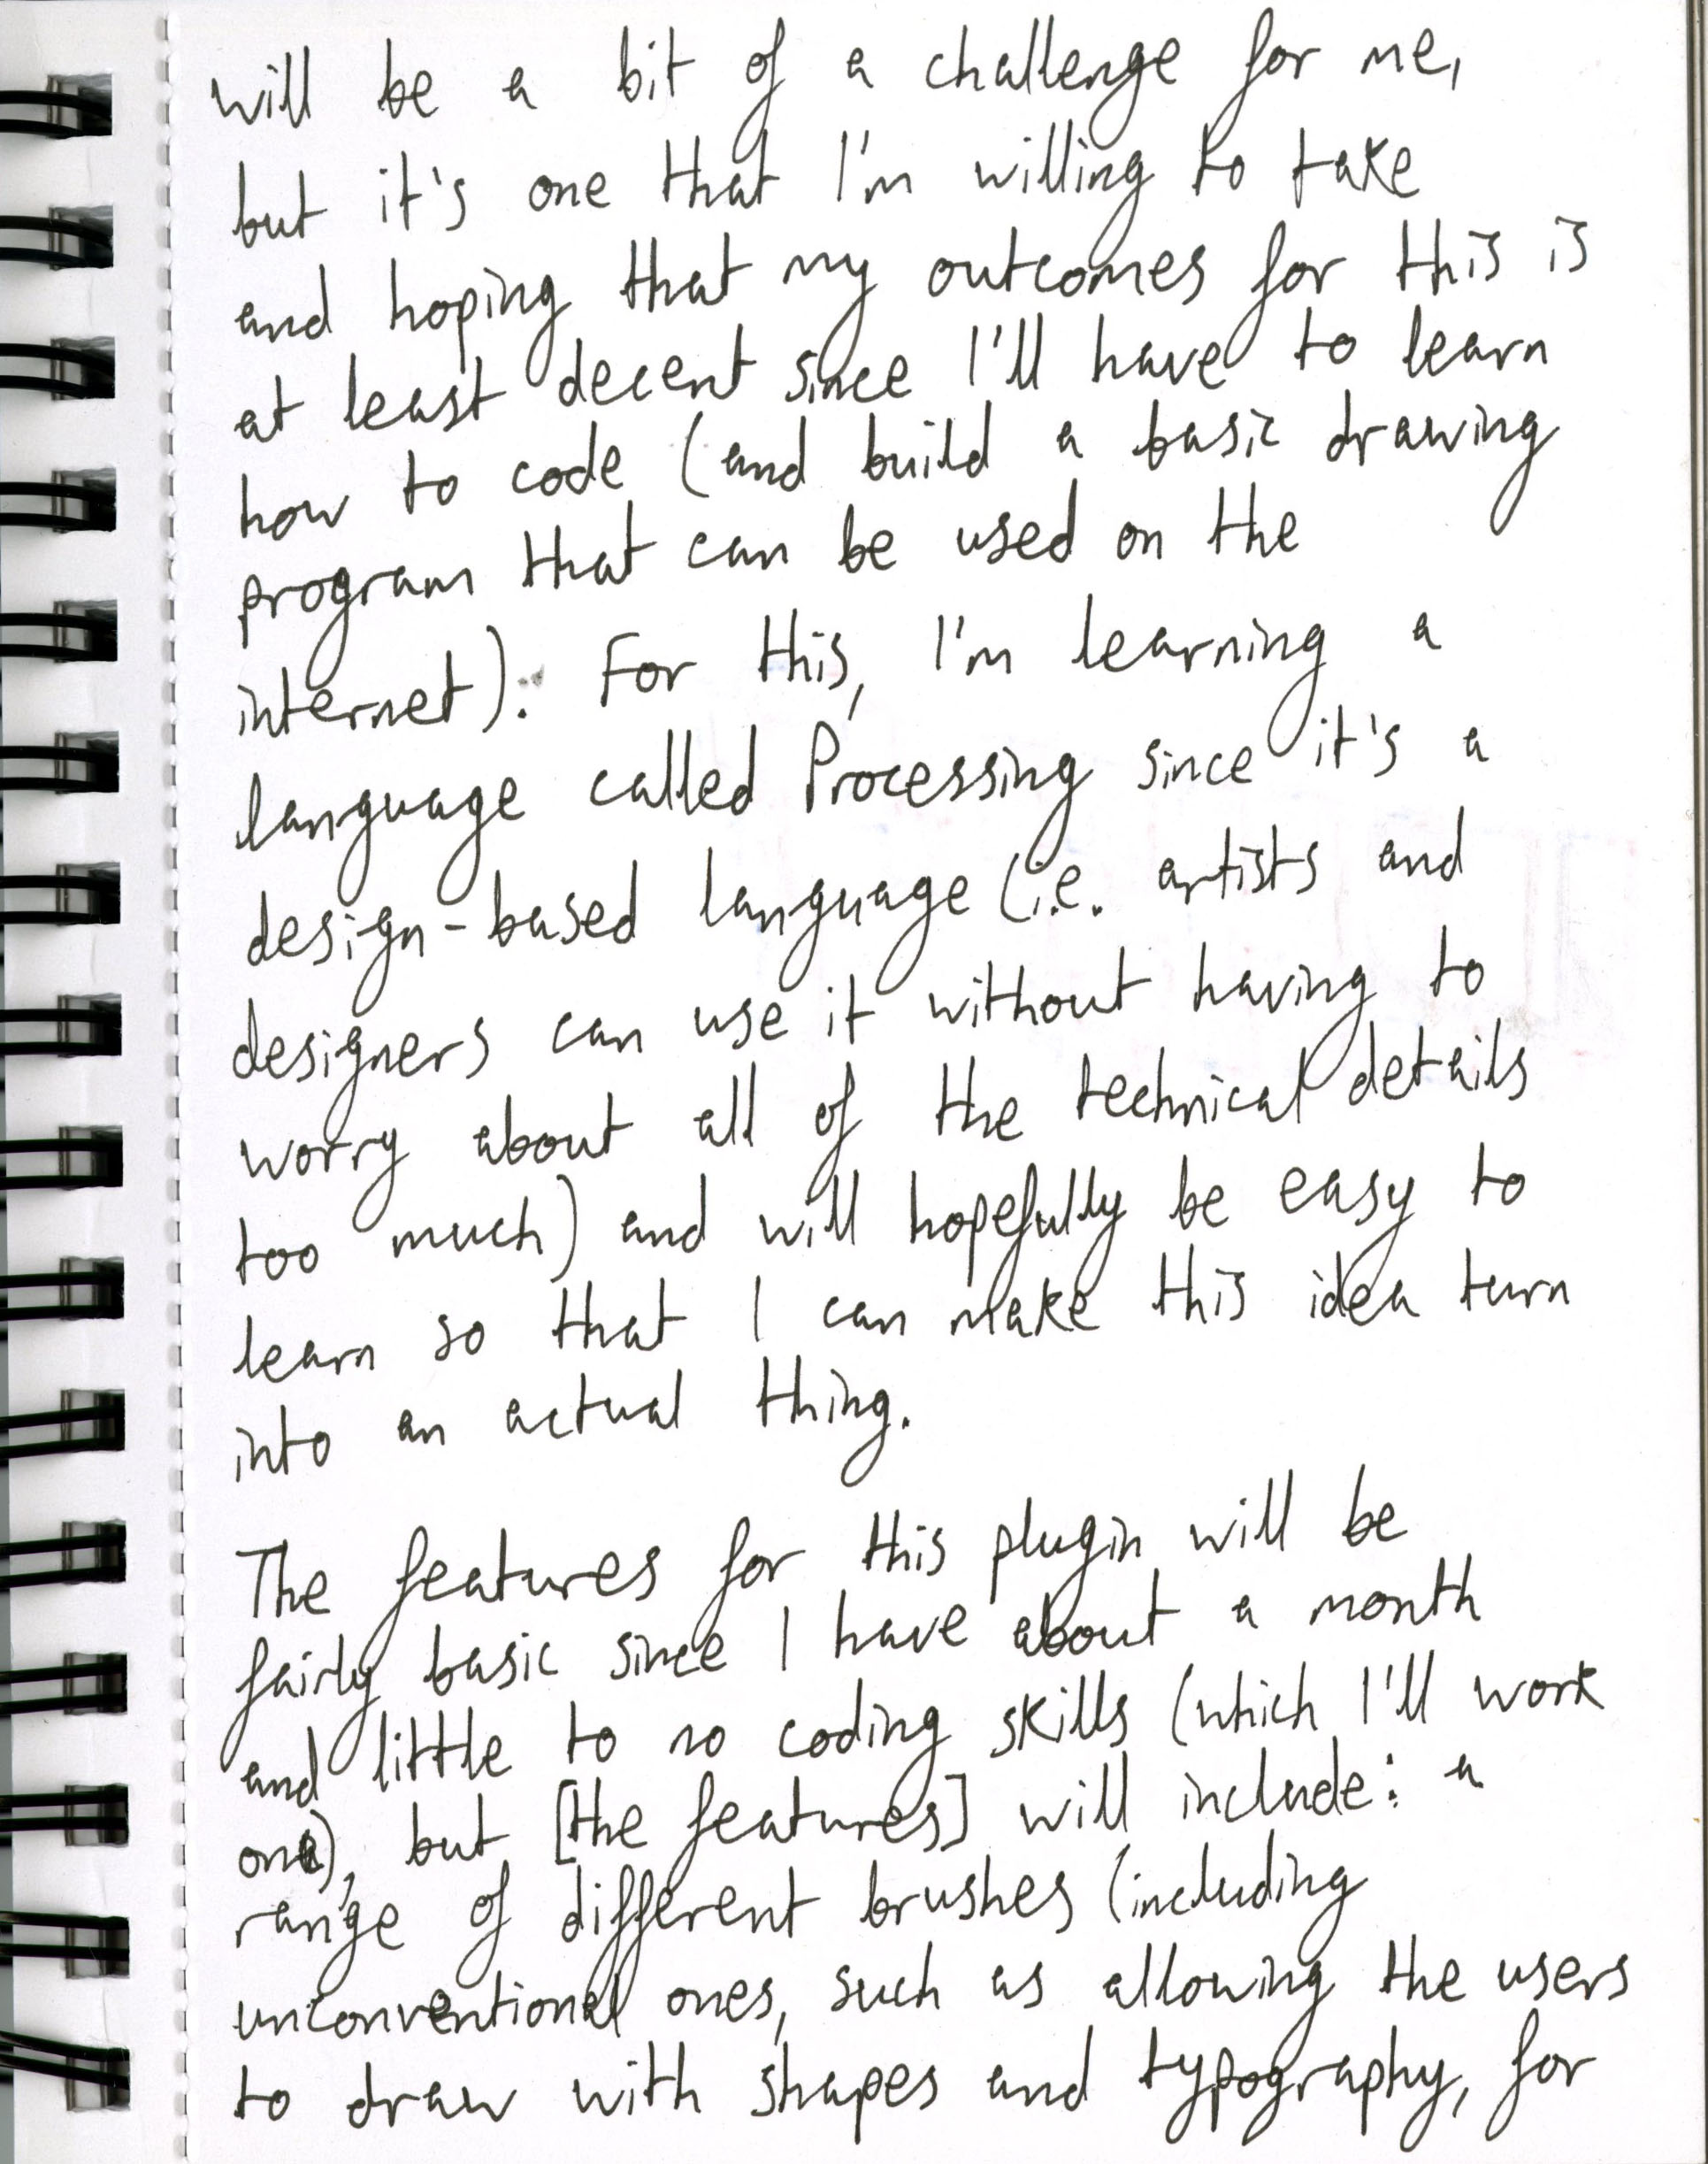 will be a bit of a challenge for me,
but it's one that I'm willing to take
and hoping that my outcomes for this is
at least decent since I'll have to learn
how to code (and build a basic drawing
program that can be used on the
internet). For this, I'm learning a
language called Processing since it's a
design-based language (i.e. artists and
designers can use it without having to
worry about all of the technical details
too much) and will hopefully be easy to
learn so that I can make this idea turn
into an actual thing.
The features for this plugin will be
fairly basic since I have about a month
and little to no coding skills (which I'll work
on), but [the features] will include: a
range of different brushes (including
unconventional ones, such as allowing the users
to draw with shapes and typography, for